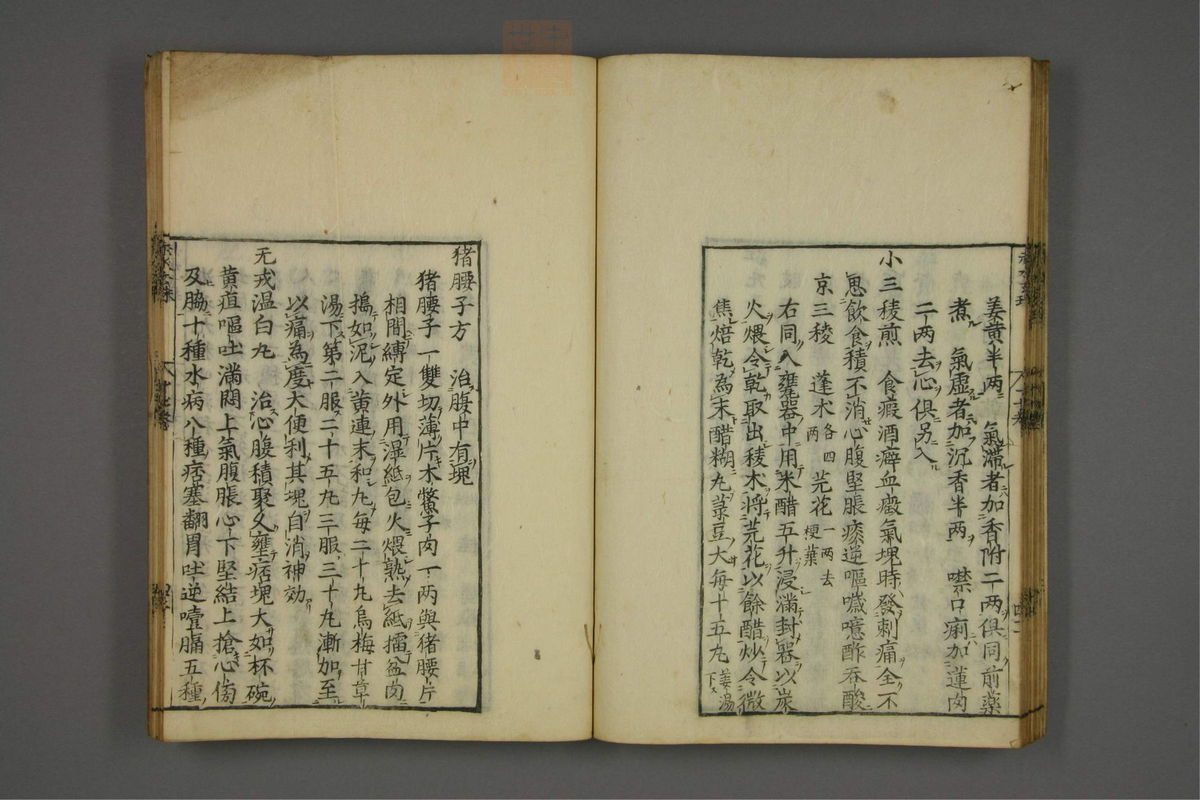 姜黄半两 氣滯者加香附二两俱同前藥
煮 氣虚者加沉香半两 噤口痢加蓮肉
二两去心俱另入
小三稜煎 食癥酒癖血瘕氣塊時發刺痛全不
思飲食積不消心腹堅脹痰逆嘔噦噫酢吞酸
京三稜 蓬术各四两 芫花一两去梗葉
右同入甕器中用米醋五升浸滿封器以炭
火煨令乾取出稜术將芫花以餘醋炒令微
焦焙乾為末醋糊丸菉豆大每十五丸姜湯下
猪腰子方 治腹中有塊
猪腰子一雙切薄片木鱉子肉一两與猪腰片
相間縛定外用濕紙包火煨熟去紙擂盆内
搗如泥入黄連末和丸每二十丸烏梅甘草
湯下第二服二十五丸三服三十丸漸加至
以痛為度大便利其塊自消神効
无戎温白丸 治心腹積聚久壅痞塊大如杯碗
黄疸嘔吐滿悶上氣腹脹心下堅結上搶心傍
及脇十種水病八種痞塞翻胃吐逆噎膈五種